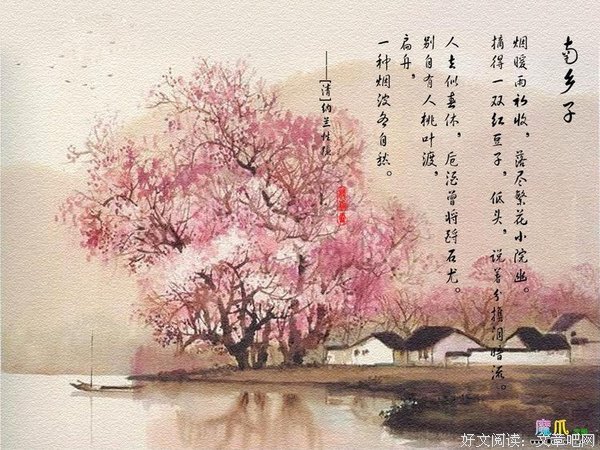 南乡子
烟暖雨初收，落尽繁花小院幽。
摘得一双红豆子，低头，说着分携泪暗流。
人去似春休，卮酒曾将酹石尤。
别自有人桃叶渡，
扁舟，
一种烟波各自愁。
——[清]纳兰性德
魔爪
好文阅读：文章吧网